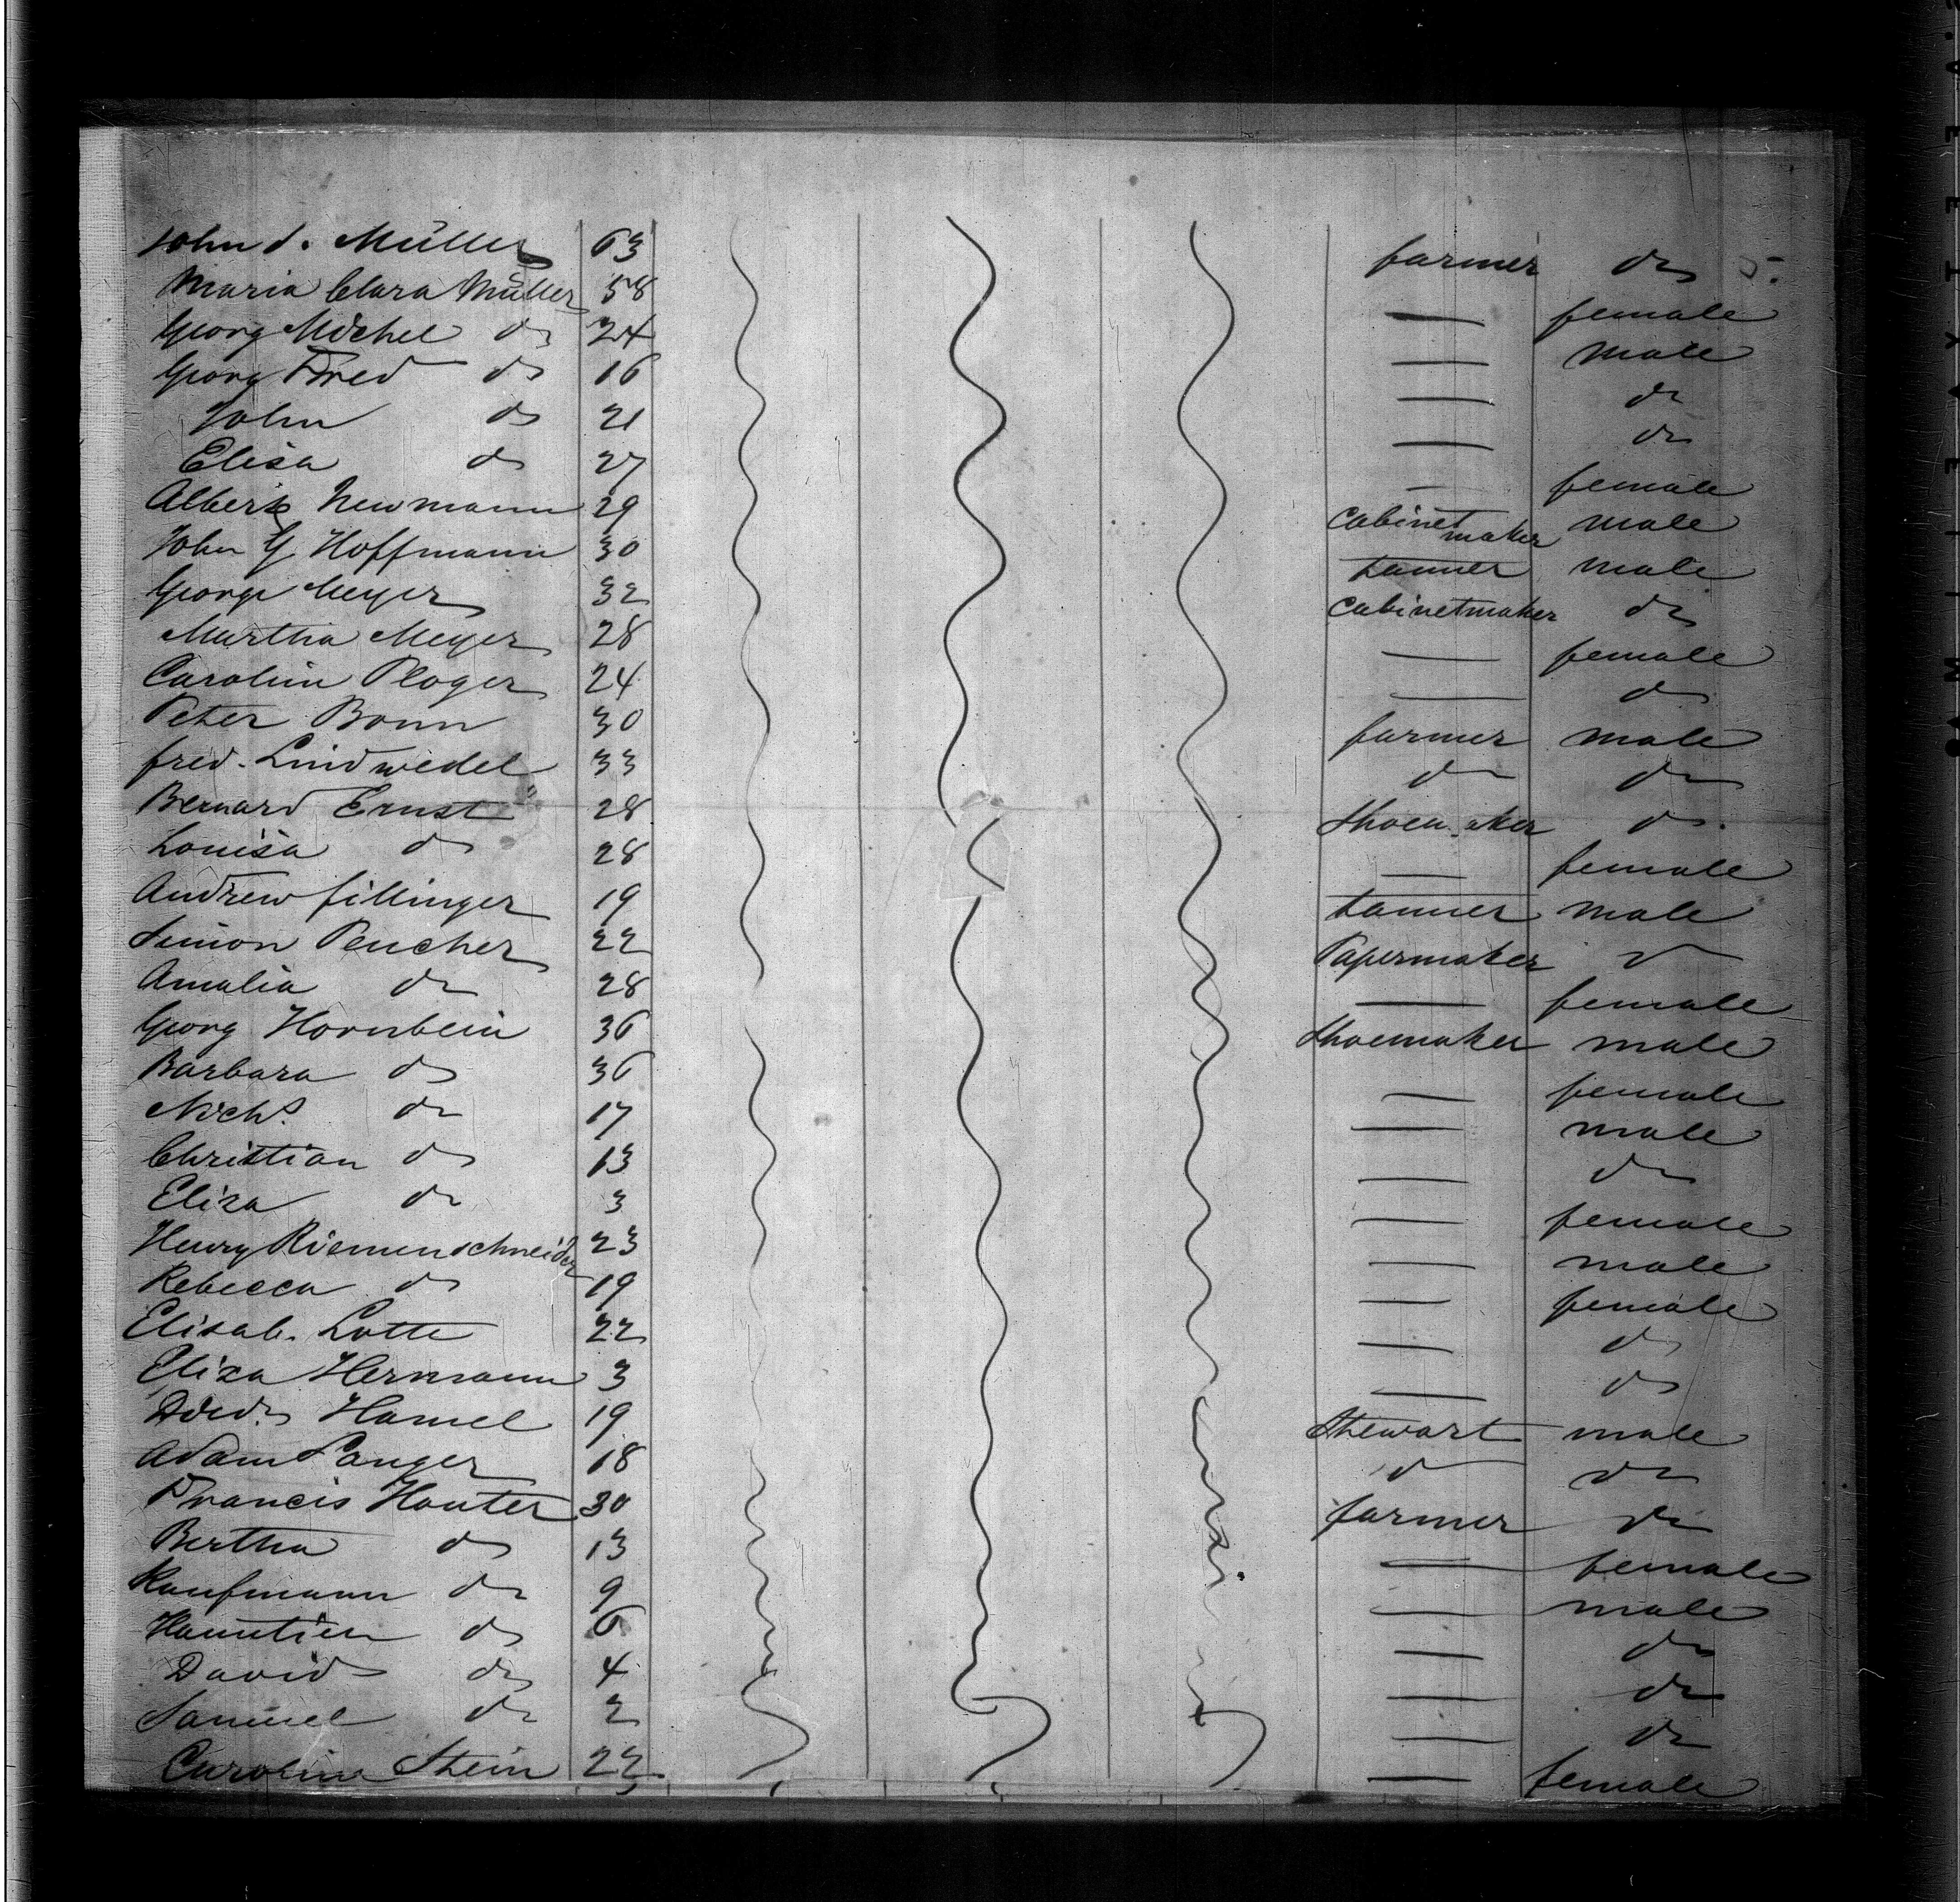 John J. Müller 63 farmer do
Maria Clara Müller 58 — female
Georg Michel do 24 — male
Georg Fred do 16 — do
John do 21 — do
Elisa do 27 — female
Albert Newmann 29 cabinet maker male
John G. Hoffmann 30 tanner male
George Meyer 32 cabinetmaker do
Martha Meyer 28 — female
Carolin Ploger 24 — do
Peter Bonn 30 farmer male
fred. Lindwedel 33 do do
Bernard Ernst 28 Shoemaker do
Louisa do 28 — female
Andrew fillinger 19 tanner male
Simon Peucher 22 Papermaker do
Amalia do 28 — female
Georg Hornbein 36 Shoemaker male
Barbara do 36 — female
Nichs. do 17 — male
Christian do 13 — do
Eliza do 3 — female
Henry Riemenschneider 23 — male
Rebecca do 19 — female
Elisab. Lotte 22 — do
Eliza Hermann 3 — do
Hamel 19 Stewart male
Adam Langer 18 do do
Francis Hauter 30 farmer do
Bertha do 13 — female
Kaufmann do 9 — male
do 6 — do
David do 4 — do
Samuel do 2 — do
Carolina Stein 22 — female